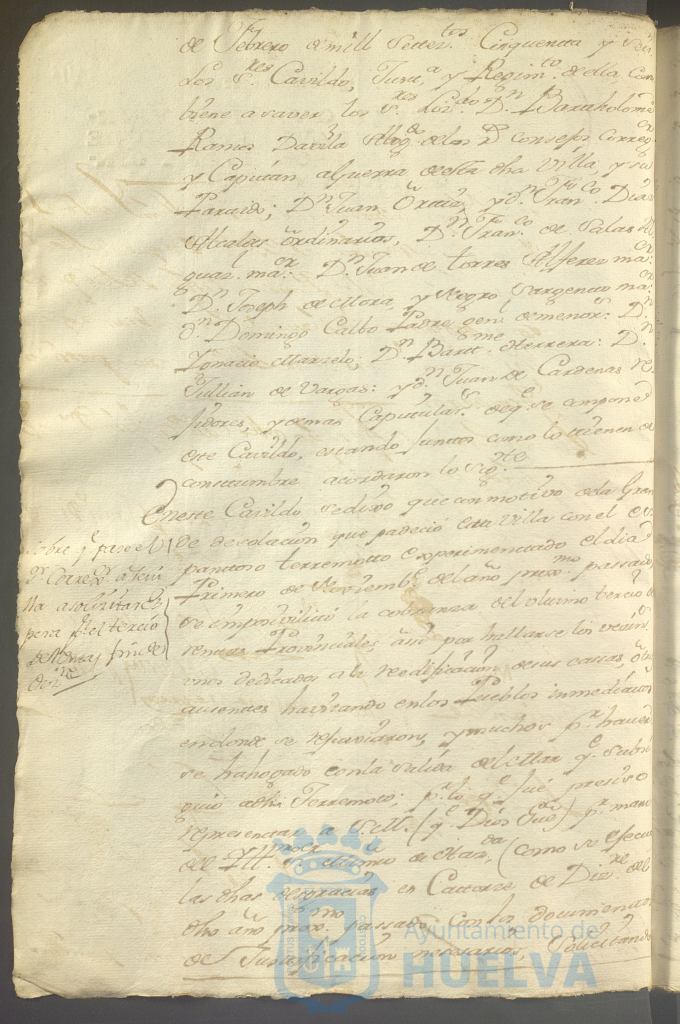 de Febrero de mill Settez.tos Cinquenta y Seis
Los S.res Cavildo, Just.a y Regim.to de ella, Com
biene a saver los S.res Liz.do D.n Bartholome
Ramos Davila Abog.do de los R.s consejos Correg.or
y Capitan a Guerra de esta dha Villa, y su
Partido; D.n Juan y d.n Fran.co Dias
Alcaldes ordinarios, D.n Fran.co de Salas Al
guaz.l ma.or D.n Juan de torres Alferez ma.or
D.n Joseph de Mora, y Negro, Sargento ma.or
d.n Domingo Calbo Padre gen.l de menor.s D.n
Ignacio Marzelo; D.n Bart.me Herrera: D.n
Jullian de Vargas: y d.n Juan de Cardenas Re
jidores, y demas Capitular.s de q.e se compone
este Cavildo, estando Juntos como lo tienen de
constumbre acordaron lo Sig.te
En este Cavildo se dixo que con motivo de la Gran
de desolacion que padeció esta Villa con el es
pantoso terremotto experimentado el dia
Primero de Noviemb.e del año prox.mo passado
se imposivilitó la cobranza del ultimo tercio de
rentas Provinciales asi por hallarse los vecin
nos dedicados a la reedificacion de sus cassas, otros
ausentes havitando en los Pueblos inmediatos
en donde se refujiaron, y muchos p.r haver
se hahogado con la Salida del Mar q.e subsi
guió a dho Terremoto; p.r lo q.e fué preciso
representar a S.M. (q.e Dios Gue) p.r mano
del Ill.mo S.or de Haz.da (como se efecuó
las dhas desgracias en Cattorze de Diz.re del
dho año prox.mo passado, Con los documentos
de Justificacion necesarios, Solicitando
Sobre q.e pase el
S.or Correx.or a Sevi
lla a solicitar es
pera del tercio
de Rentas fin de
Diz.re
Ayuntamiento de
HUELVA